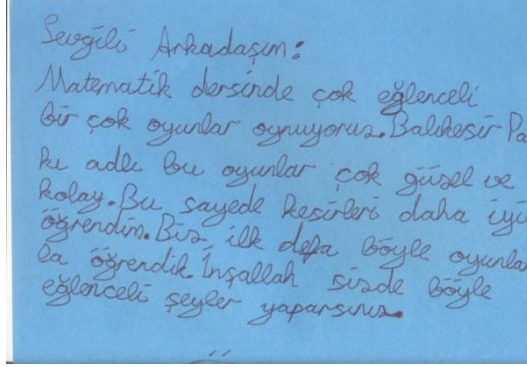 Sevgili Arkadaşım:
Matematik dersinde çok eğlenceli
bir çok oyunlar oynuyoruz. Balıkesir Pa
kı adlı bu oyunlar çok güzel ve
kolay. Bu sayede kesirleri daha iyi
öğrendim. Biz ilk defa böyle oyunla
la öğrendik. İnşallah sizde böyle
eğlenceli şeyler yaparsınız.